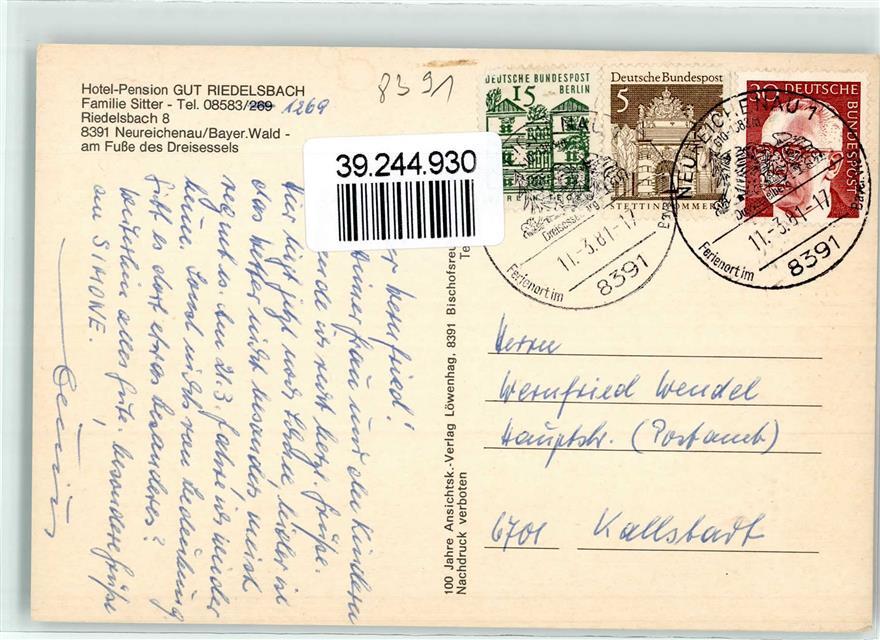 Hotel-Pension GUT RIEDELSBACH
Familie Sitter - Tel. 08583/269 1269
Riedelsbach 8
8391 Neureichenau/Bayer.Wald -
am Fuße des Dreisessels
8391
39.244.930
DEUTSCHE BUNDESPOST
15 BERLIN
Deutsche Bundespost
5
STETTIN POMMERN
30 DEUTSCHE
BUNDESPOST
NEUREICHENAU 1
Ferienort im
11.-3.81-17
8391
NEUREICHENAU 1
Ferienort im
11.-3.81-17
8391
Wernfried!
deiner Frau und den Kindern
herzl. Grüße.
Hier liegt jetzt noch Schnee, leider ist
das Wetter nicht besonders, meist
regnet es. Am 21.3. fahre ich wieder
heim. Sonst nichts von Bedeutung.
Gibt es dort etwas besonderes?
Weiterhin alles Gute, besondere Grüße
an SIMONE.
100 Jahre Ansichtsk.-Verlag Löwenhag, 8391 Bischofsreu
Te
Nachdruck verboten
Herrn
Wernfried Wendel
Hauptstr. (Postamt)
6701 Kallstadt